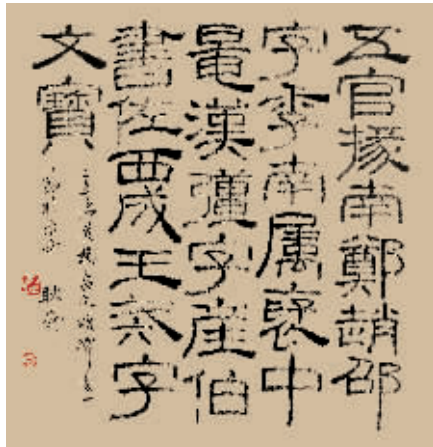 五官掾南鄭趙邵
字季南屬褒中
鼂漢彊字產伯
書佐西成王戒字
文寶